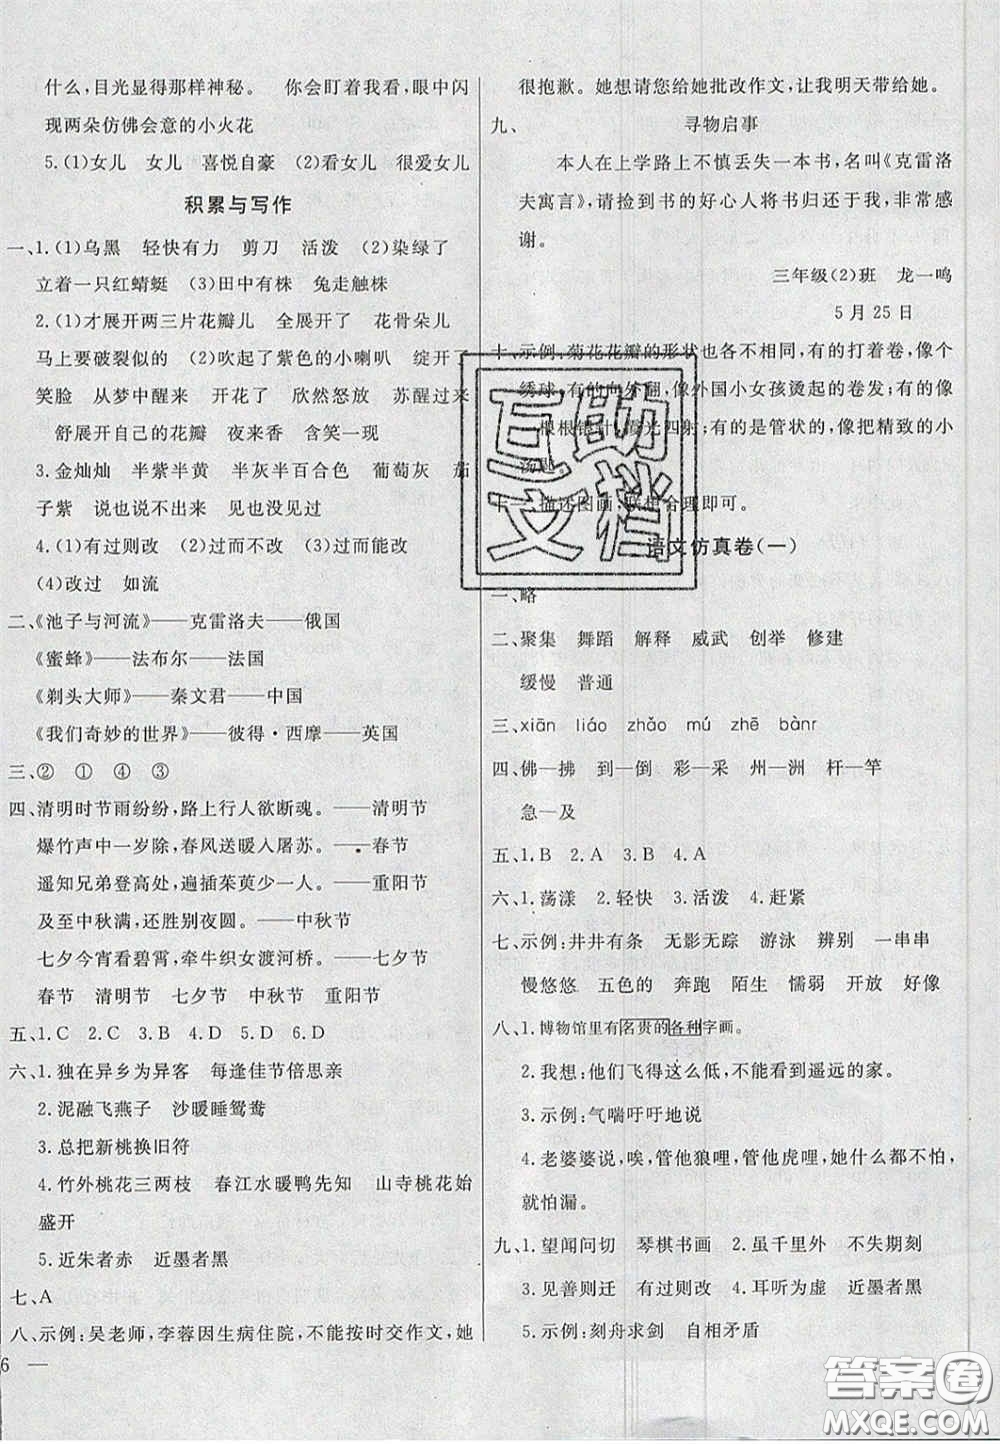 什么,目光显得那样神秘。 你会盯着我看,眼中闪
现两朵仿佛会意的小火花
5.(1)女儿 女儿 喜悦自豪 (2)看女儿 很爱女儿
积累与写作
一、1.(1)乌黑 轻快有力 剪刀 活泼 (2)染绿了
立着一只红蜻蜓 (3)田中有株 兔走触株
2.(1)才展开两三片花瓣儿 全展开了 花骨朵儿
马上要破裂似的 (2)吹起了紫色的小喇叭 绽开了
笑脸 从梦中醒来 开花了 欣然怒放 苏醒过来
舒展开自己的花瓣 夜来香 含笑一现
3.金灿灿 半紫半黄 半灰半百合色 葡萄灰 茄
子紫 说也说不出来 见也没见过
4.(1)有过则改 (2)过而不改 (3)过而能改
(4)改过 如流
二、《池子与河流》——克雷洛夫——俄国
《蜜蜂》——法布尔——法国
《剃头大师》——秦文君——中国
《我们奇妙的世界》——彼得·西摩——英国
三、② ① ④ ③
四、清明时节雨纷纷,路上行人欲断魂。——清明节
爆竹声中一岁除,春风送暖入屠苏。——春节
遥知兄弟登高处,遍插茱萸少一人。——重阳节
及至中秋满,还胜别夜圆。——中秋节
七夕今宵看碧霄,牵牛织女渡河桥。——七夕节
春节 清明节 七夕节 中秋节 重阳节
五、1.C 2.C 3.C 4.D 5.D 6.D
六、1.独在异乡为异客 每逢佳节倍思亲
2.泥融飞燕子 沙暖睡鸳鸯
3.总把新桃换旧符
4.竹外桃花三两枝 春江水暖鸭先知 山寺桃花始
盛开
5.近朱者赤 近墨者黑
七、A
八、示例:吴老师,李蓉因生病住院,不能按时交作文,她
6 —
很抱歉。她想请您给她批改作文,让我明天带给她。
九、 寻物启事
本人在上学路上不慎丢失一本书,名叫《克雷洛
夫寓言》,请捡到书的好心人将书归还于我,非常感
谢。
三年级(2)班 龙一鸣
5月25日
十、示例:菊花花瓣的形状也各不相同,有的打着卷,像个
绣球;有的向外翻,像外国小女孩烫起的卷发;有的像
根根银针,光四射;有的是管状的,像把精致的小
汤匙。
十一、描述图画,联想合理即可。
语文仿真卷(一)
一、略
二、聚集 舞蹈 解释 威武 创举 修建
缓慢 普通
三、xiān liáo zhǎo mú zhē bànr
四、佛—拂 到—倒 彩—采 州—洲 杆—竿
急—及
五、1.B 2.A 3.B 4.A
六、1.荡漾 2.轻快 3.活泼 4.赶紧
七、示例:井井有条 无影无踪 游泳 辨别 一串串
慢悠悠 五色的 奔跑 陌生 懦弱 开放 好像
八、1.博物馆里有名贵的各种字画。
2.我想:他们飞得这么低,不能看到遥远的家。
3.示例:气喘吁吁地说
4.老婆婆说,唉,管他狼哩,管他虎哩,她什么都不怕,
就怕漏。
九、1.望闻问切 琴棋书画 2.虽千里外 不失期刻
3.见善则迁 有过则改 4.耳听为虚 近墨者黑
5.示例:刻舟求剑 自相矛盾
互助
文档
答案圈
MXQE.COM